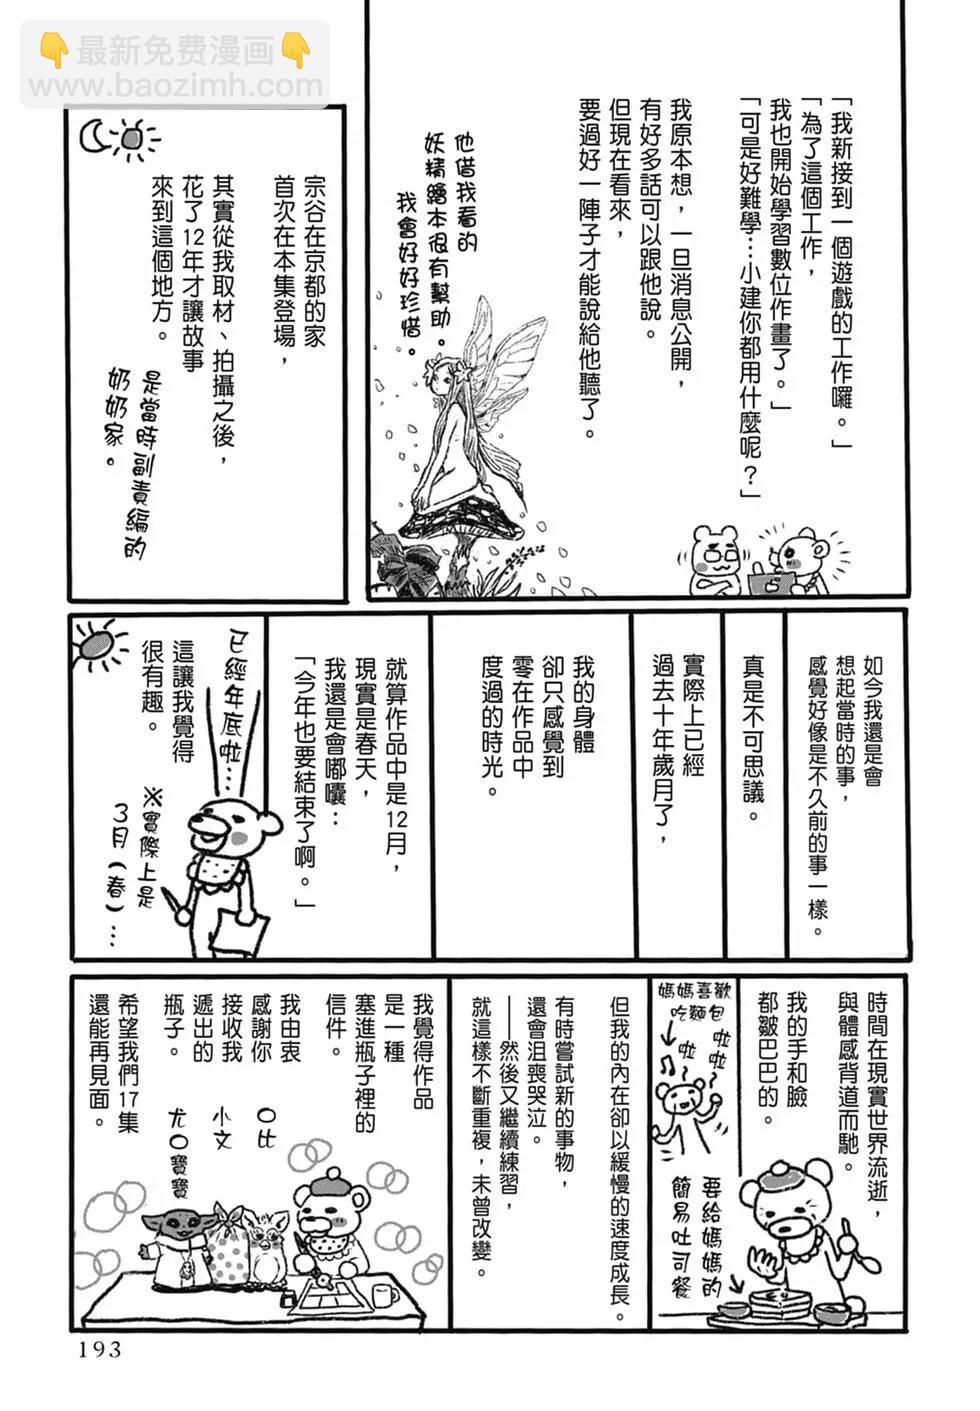 最新免费漫画
www.baozimh.com
「我新接到一個遊戲的工作囉。」
「為了這個工作，
我也開始學習數位作畫了。」
「可是好難學…小建你都用什麼呢？」
我原本想，一旦消息公開，
有好多話可以跟他說。
但現在看來，
要過好一陣子才能說給他聽了。
他借我看的
妖精繪本很有幫助。
我會好好珍惜。
宗谷在京都的家
首次在本集登場，
其實從我取材、拍攝之後，
花了12年才讓故事
來到這個地方。
是當時副責編的
奶奶家。
如今我還是會
想起當時的事，
感覺好像是不久前的事一樣。
真是不可思議。
實際上已經
過去十年歲月了，
我的身體
卻只感覺到
零在作品中
度過的時光。
就算作品中是12月，
現實是春天，
我還是會嘟囔：
「今年也要結束了啊。」
已經年底啦…
這讓我覺得
很有趣。
※實際上是
3月（春）…
時間在現實世界流逝，
與體感背道而馳。
我的手和臉
都皺巴巴的。
媽媽喜歡
吃麵包
啦啦
啦
♪
要給媽媽的
簡易吐司餐
但我的內在卻以緩慢的速度成長。
有時嘗試新的事物，
還會沮喪哭泣。
——然後又繼續練習，
就這樣不斷重複，未曾改變。
我覺得作品
是一種
塞進瓶子裡的
信件。
我由衷
感謝你
接收我
遞出的
瓶子。
〇比
小文
尤〇寶寶
希望我們17集
還能再見面。
193